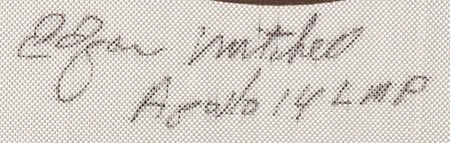 Edgar Mitchell
Apollo 14 LMP